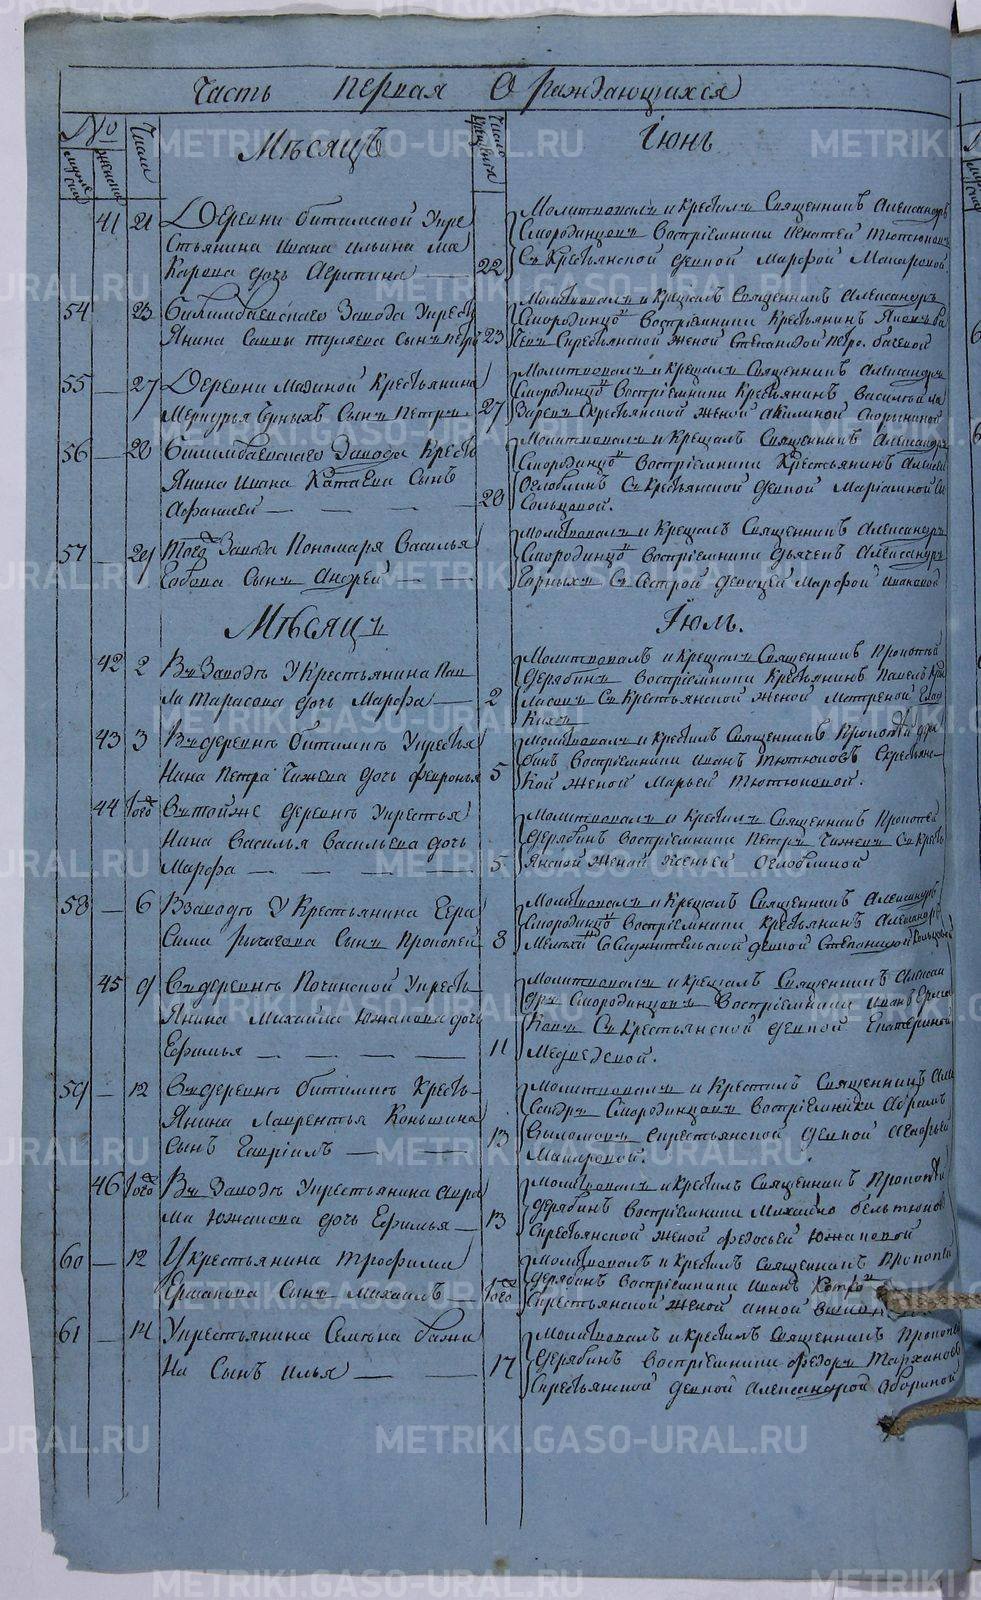 Часть первая О раждающихся
№ Числа Мѣсяцъ Число крещения Іюнь
мужеска женска
41 21 Деревни битимской укре
стьянина ивана ильина ма
карова дочь Агрипина 22
Молитвовалъ и крестилъ Священникъ Александръ
Смородинцовъ Воспріемники игнатей тютюковъ
Съ Крестьянской девкой Марфой Макаровой
54 23 Билимбаевскаго Завода укресть
Янина Саввы туляева сынъ петръ 23
Молитвовалъ и крещалъ Священникъ Александръ
Смородинцовъ Воспріемники Крестьянинъ Яковъ ба
Скрестьянской женой Степанидой петро. бачевой
55 27 Деревни Крестьянина
Меркурья Черныхъ Сынъ Петръ 27
Молитвовалъ и крещалъ Священникъ Александръ
Смородинцовъ Воспріемники Крестьянинъ Василей ма
Заревъ Скрестьянской женой акилиной
56 28 Билимбаевскаго Завода Кресть
Янина ивана Катаева Сынъ
Афанасей 28
Молитвовалъ и Крещалъ Священникъ Александръ
Смородинцовъ Воспріемники Крестьянинъ Алексей
Оглоблинъ Съ Крестьянской девкой Маріамной Ск
Сольцовой.
57 29 Тогож Завода Пономаря Василья
Сынъ Андрей
Молитвовалъ и Крещалъ Священникъ Александръ
Смородинцовъ Воспріемники дьячекъ Александръ
Горныхъ Съ Сестрой девицей Марфой иваковой
Мѣсяцъ Іюль.
42 2 Въ Заводѣ У Крестьянина Пав
Ла Тарасова дочь Марфа 2
Молитвовалъ и Крещалъ Священникъ Прокопей
Дерябинъ Воспріемники Крестьянинъ Павелъ
Съ Крестьянской женой Матреной Глад
Кихъ
43 3 Въ деревнѣ битимкѣ Укрестья
Нина Петра Чижева дочь февронья 5
Молитвовалъ и крестилъ Священникъ Прокопей деря
бинъ Воспріемники иванъ Тютюковъ Скрестьянс
Кой женой Марьей Тютюковой.
44 тогож Въ тойже деревнѣ Укрестья
Нина Василья Васильева дочь
Марфа 5
Молитвовалъ и Крестилъ Священникъ Прокопей
Дерябинъ Воспріемники Петръ Чижевъ Съ Кресть
Янской женой Ксеньей Оглоблиной
58 6 Взаводѣ У Крестьянина Гера
Сима рычагова Сынъ Прокопей 8
Молитвовалъ и Крещалъ Священникъ Александръ
Смородинцовъ Воспріемники Крестьянинъ Александръ
СоСлужительской девкой Степанидой
45 9 Въ деревнѣ Починской Укресть
Янина Михайла Южакова дочь
Ефимья 11
Молитвовалъ и крещалъ Священникъ Алексан
дръ Смородинцовъ Воспріемники иванъ Ерма
Ковъ Съ Крестьянской девкой Екатериной
Медведской.
59 12 Въ деревнѣ битимкѣ Кресть
Янина Лаврентья Коньшина
Сынъ Гавріилъ 13
Молитвовалъ и Крестилъ Священникъ Але
Ксандръ Смородинцовъ Воспріемники Абрамъ
Скрестьянской девкой
Макаровой.
46 тогож Въ Заводѣ Укрестьянина Авра
Ма Южакова дочь Ефимья 13
Молитвовалъ и крестилъ Священникъ Прокопей
Дерябинъ Воспріемники Михайло бельтюковъ
Скрестьянской женой федосьей Южаковой
60 12 У крестьянина Трофима
Ермакова Сынъ Михаилъ тогож
Молитвовалъ и крестилъ Священникъ Прокопей
Дерябинъ Воспріемники иванъ
Скрестьянской женой анной
61 14 Укрестьянина Семена бажи
На Сынъ илья 17
Молитвовалъ и крестилъ Священникъ Прокопей
Дерябинъ Воспріемники федоръ Тархановъ
Скрестьянской девкой Александрой
METRIKI.GASO-URAL.RU